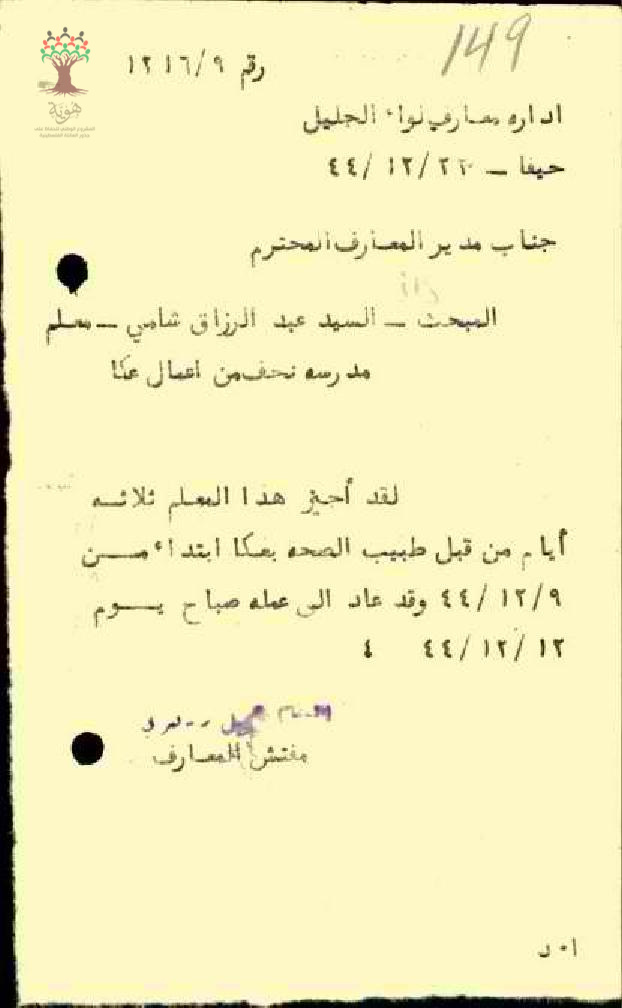 149
رقم ١٢١٦/٩
هوية
اداره معارف لواء الجليل
حيفا – ٢٢/١٢/٤٤
جناب مدير المعارف المحترم
المبحث – السيد عبد الرزاق شامي – معلم
مدرسه نحف من اعمال عكا
لقد أجيز هذا المعلم ثلاثه
أيام من قبل طبيب الصحه بعكا ابتداء من
٤٤/١٢/٩ وقد عاد الى عمله صباح يوم
٤٤/١٢/١٢ ٤
مفتش المعارف
ا٠د